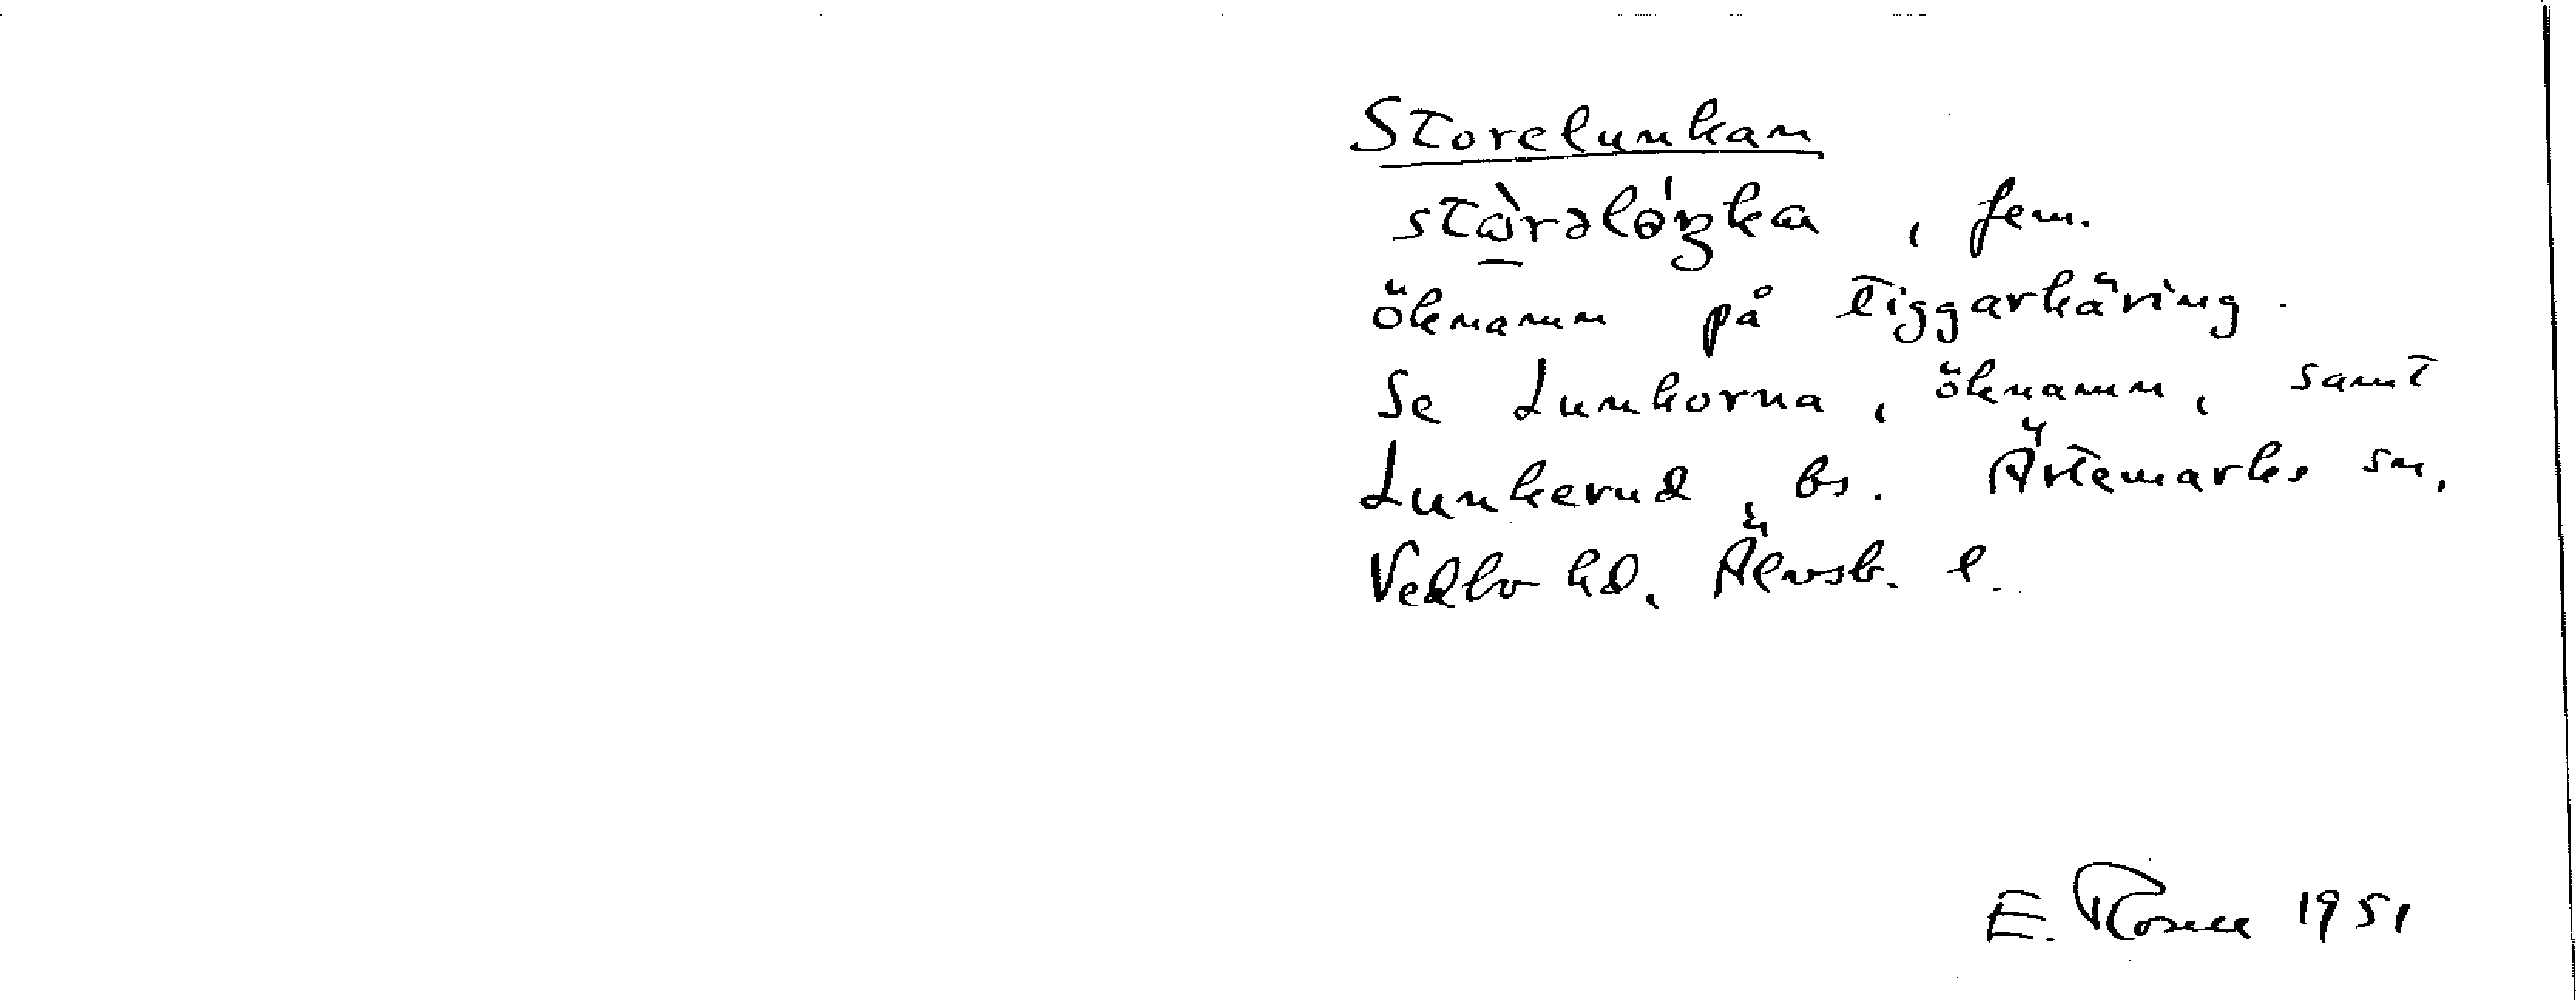 Storelunkan
stàrəlóŋka, fem.
öknamn på tiggarkäring.
Se Lunkorna, öknamn, samt
Lunkerud, bs. Ärtemarks sn,
Vedbo hd, Älvsb. l.
E. Rosell 1951